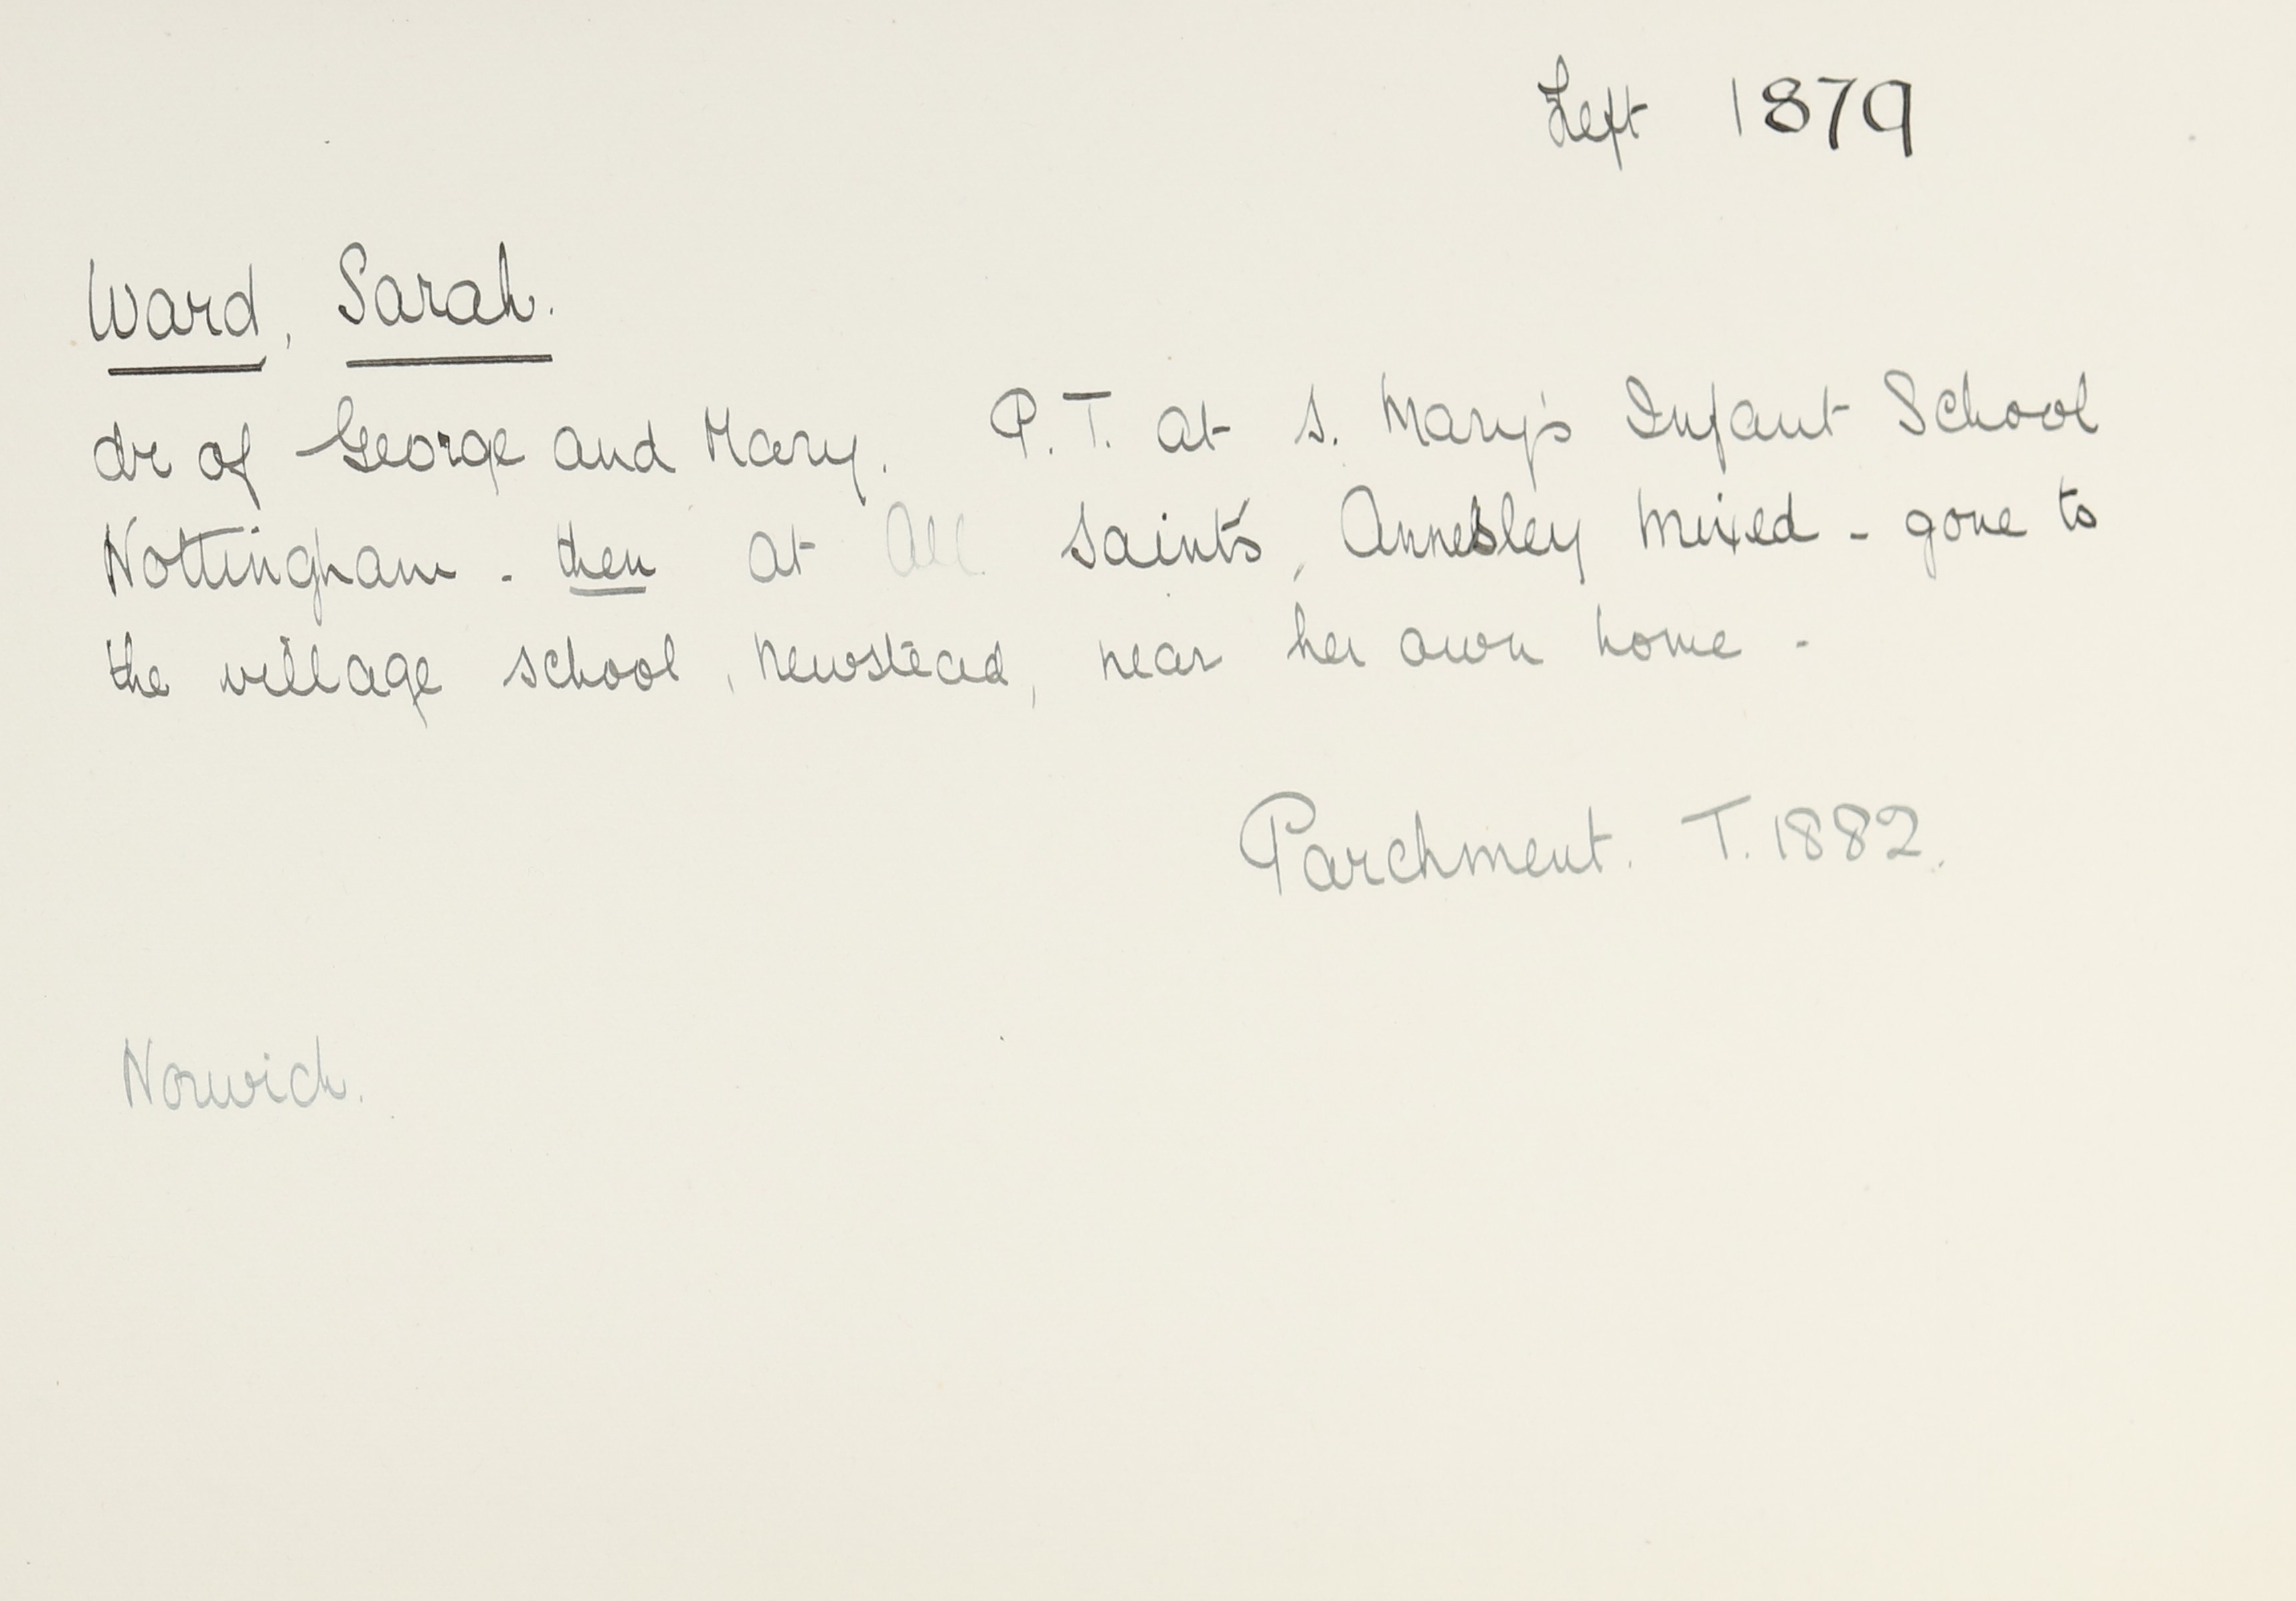 Left 1879
Ward, Sarah.
dr of George and Mary. P.T. at S. Mary's Infant School
Nottingham - then at All Saint's, Annesley Mixed - gone to
the village school, Newstead, near her own home -
Parchment. T. 1882.
Norwich.